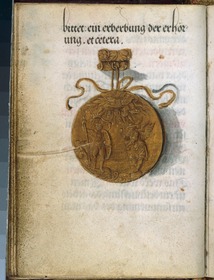 bittet ein erberbung der erhor
ung. et cetera.